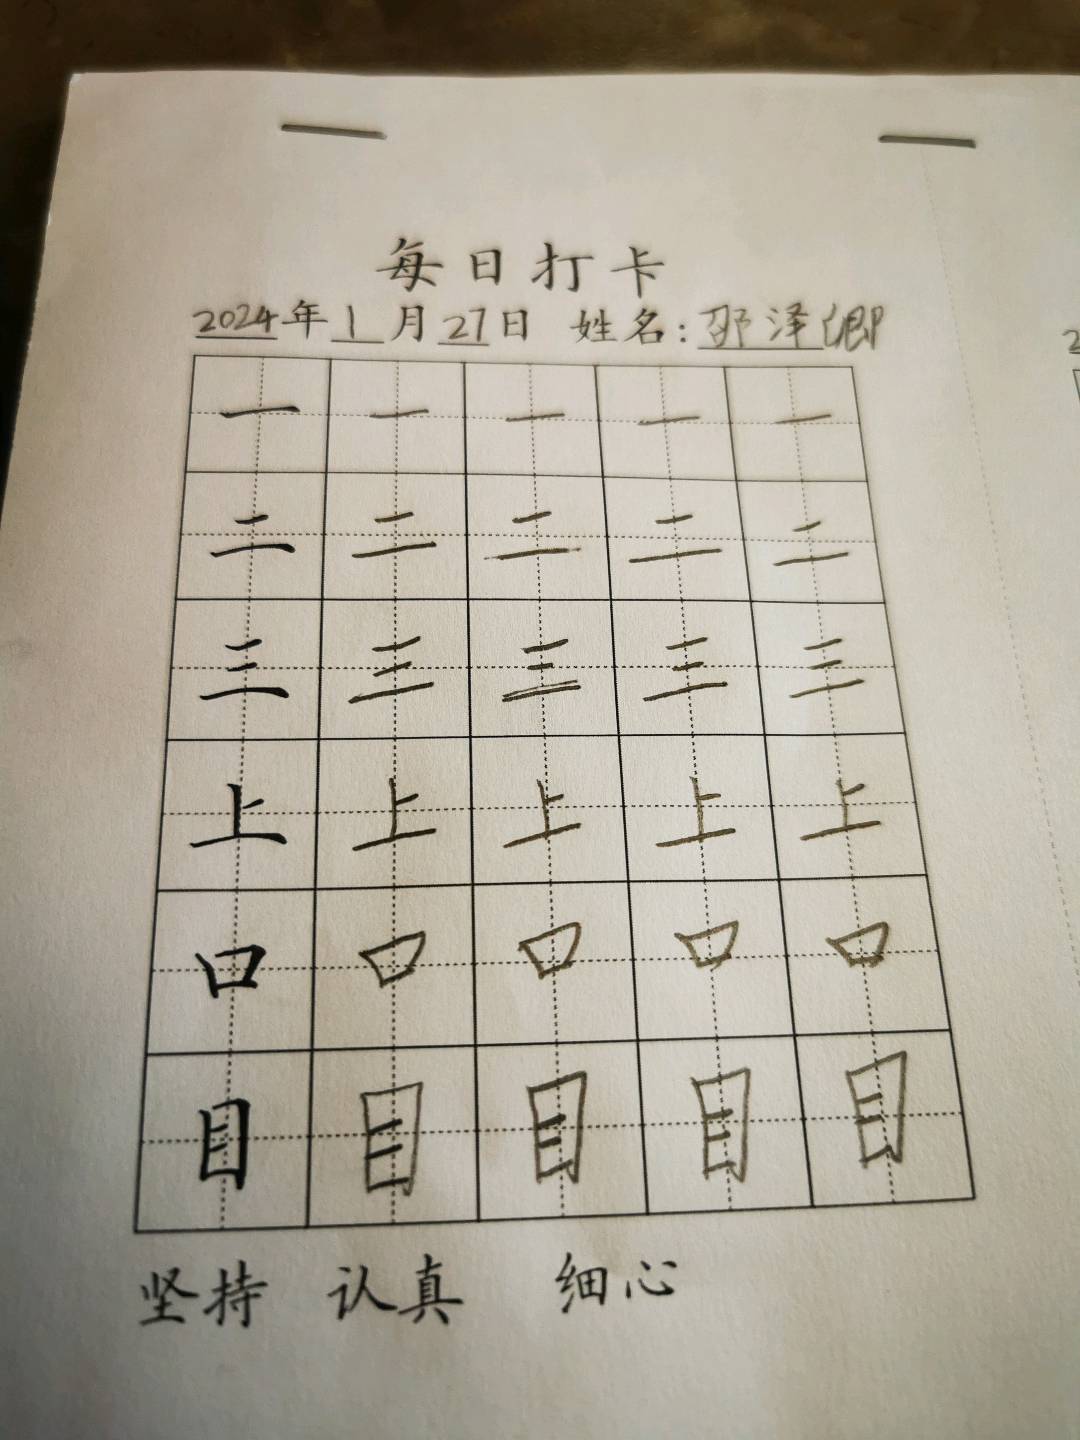 每日打卡
2024年1月27日 姓名:邵泽卿
一 一 一 一 一
二 二 二 二 二
三 三 三 三 三
上 上 上 上 上
口 口 口 口 口
目 目 目 目 目
坚持 认真 细心